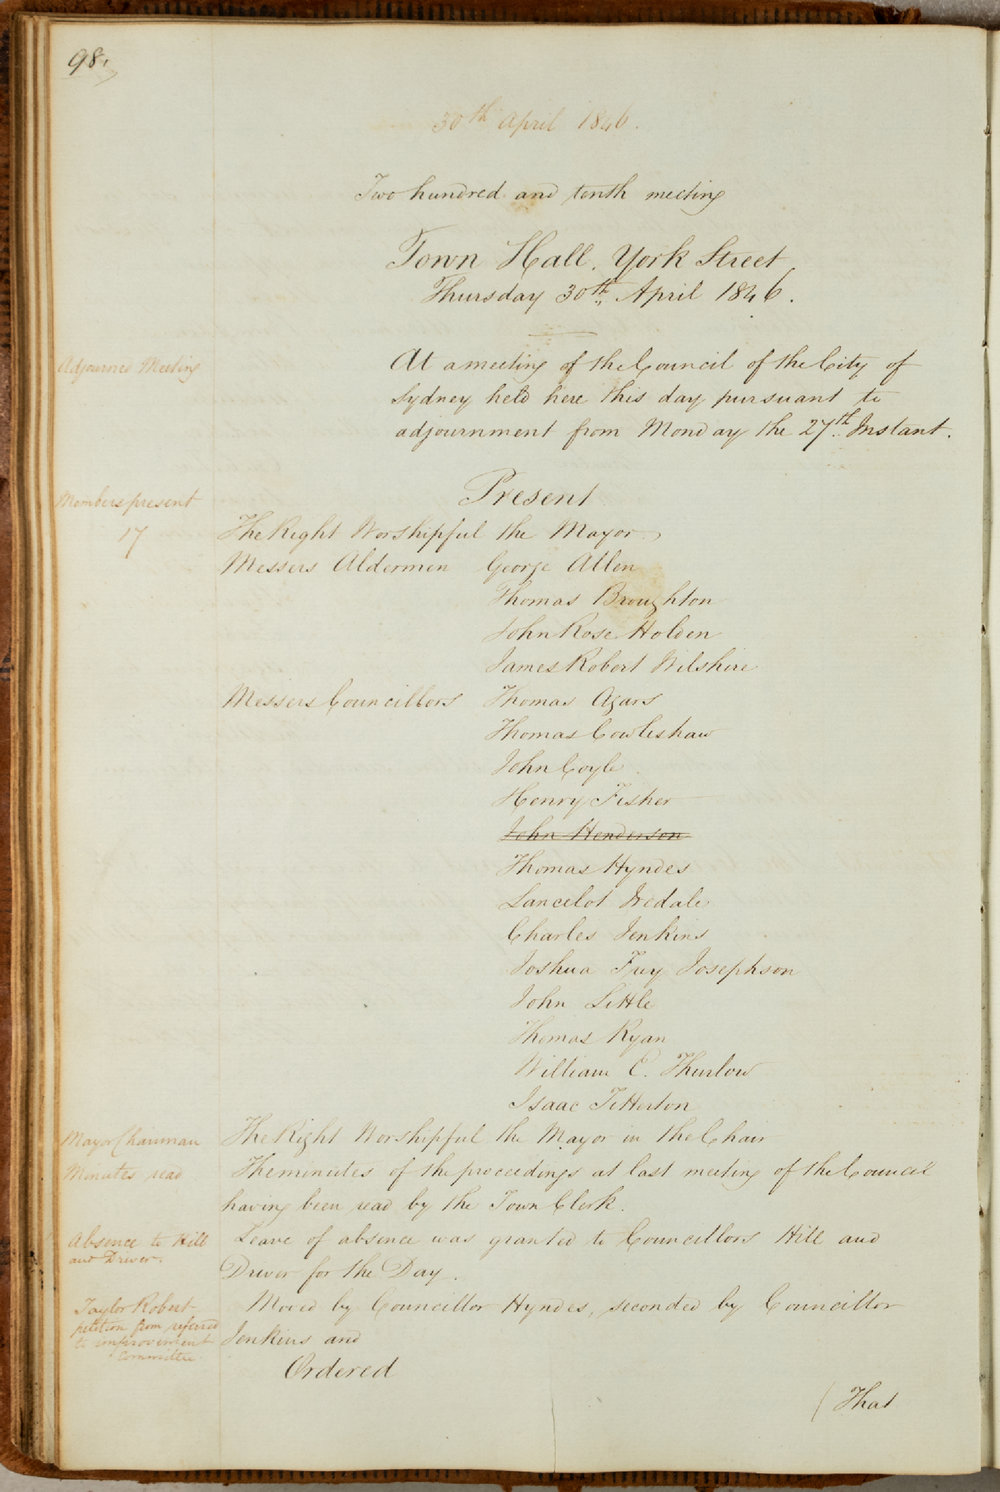 98.
30th April 1846.
Two hundred and tenth meeting
Town Hall. York Street
Thursday 30th April 1846.
Adjourned Meeting
At a meeting of the Council of the City of
Sydney held here this day pursuant to
adjournment from Monday the 27th Instant.
Members present
17
Present
The Right Worshipful the Mayor
Messers Aldermen George Allen
Thomas Broughton
John Rose Holden
James Robert Wilshire
Messers Councillors Thomas Agars
Thomas Cowlishaw
John Coyle
Henry Fisher
John Henderson
Thomas Hyndes
Lancelot Iredale
Charles Jenkins
Joshua Frey Josephson
John Little
Thomas Ryan
William C. Thurlow
Isaac Titterton
Mayor Chairman
The Right Worshipful the Mayor in the Chair
Minutes read
The minutes of the proceedings at last meeting of the Council
having been read by the Town Clerk.
Absence to Hill
and Driver.
Leave of absence was granted to Councillors Hill and
Driver for the Day.
Taylor Robert
petition from referred
to improvement
Committee
Moved by Councillor Hyndes, seconded by Councillor
Jenkins and
Ordered
(That